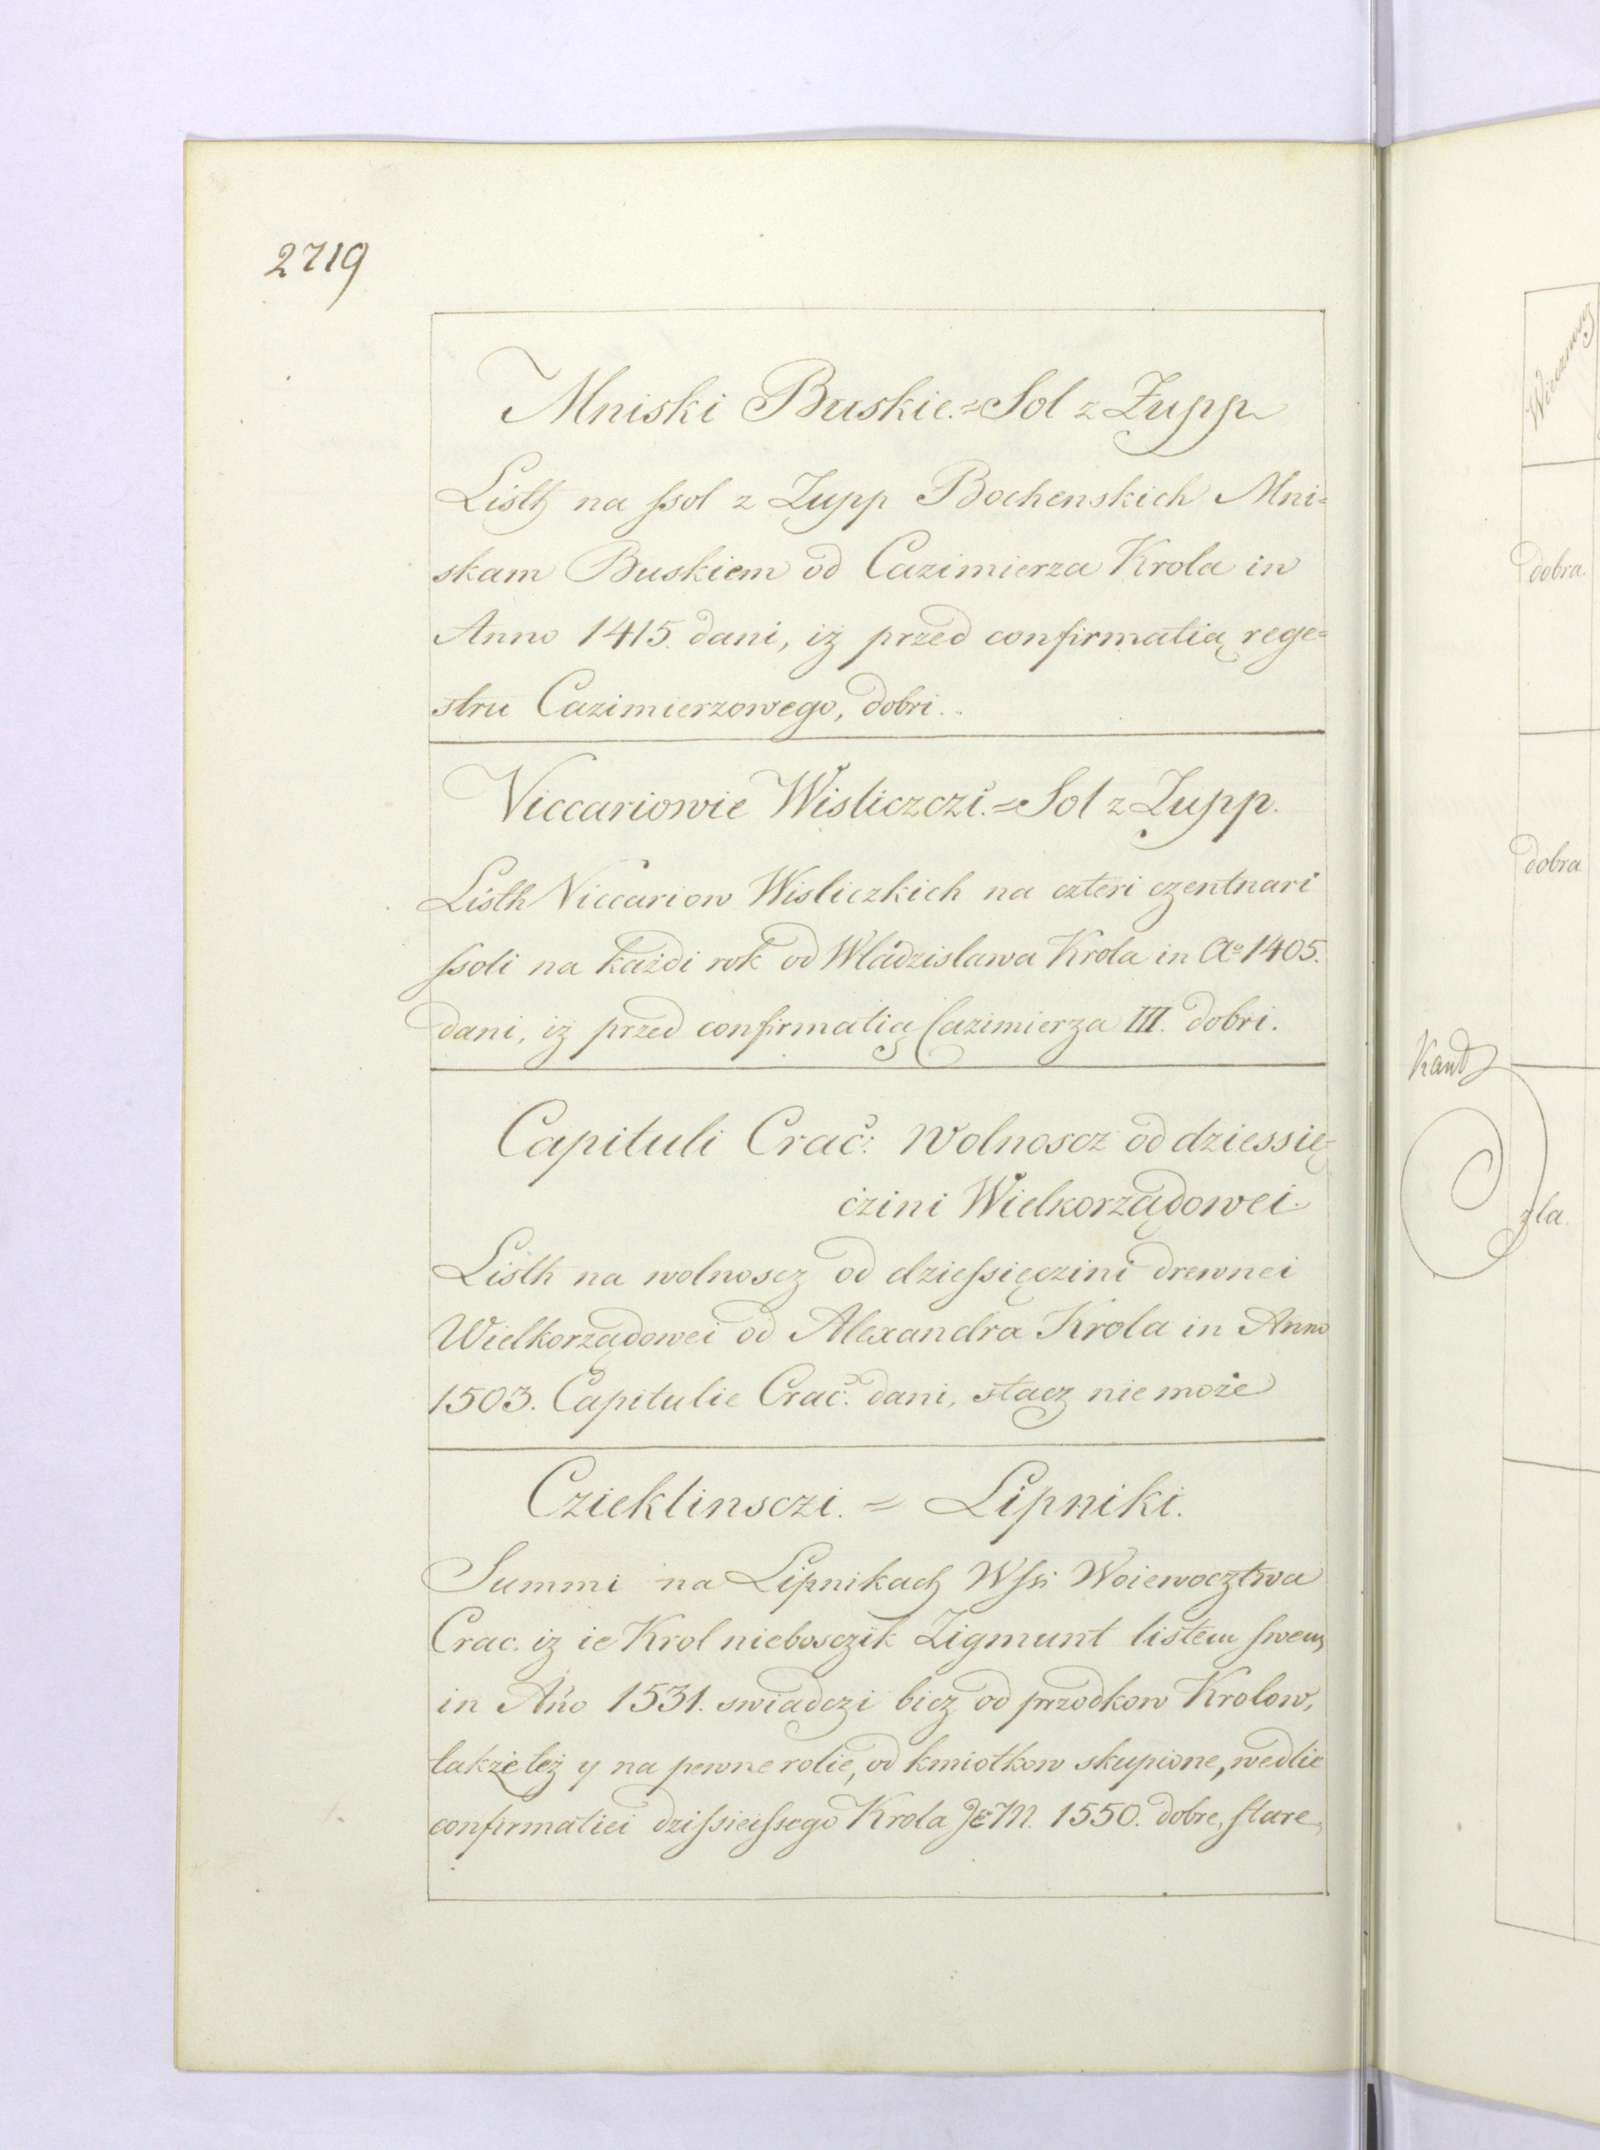 2719
Mniski Buskie. = Sol z Zupp
Listh na ssol z Zupp Bochenskich Mni=
skam Buskiem od Cazimierza Krola in
Anno 1415. dani, iż przed confirmatią rege=
stru Cazimierzowego, dobri..
Viccariowie Wisliczczi. = Sol z Zupp.
Listh Viccariow Wisliczkich na czteri czentnari
ssoli na każdi rok od Wladzislawa Krola in Ao 1405.
dani, iż przed confirmatią Cazimierza III. dobri.
Capituli Crac: Wolnoscz od dziessię=
czini Wielkorządowei.
Listh na wolnoscz od dziessięczini drewnei
Wielkorządowei od Alexandra Krola in Anno
1503. Capitulie Crac. dani, stacz nie może
Czieklinsczi. = Lipniki.
Summi na Lipnikach Wssi Woiewocztwa
Crac. iz ie Krol nieboszczik Zigmunt listem swem
in Año 1531. swiadczi bicz od przodkow Krolow,
także też y na pewne rolie, od kmiotkow skupione, wedlie
confirmatiei dzissieissego Krola JE M. 1550. dobre, stare,
dobra.
dobra
Kand
zla.